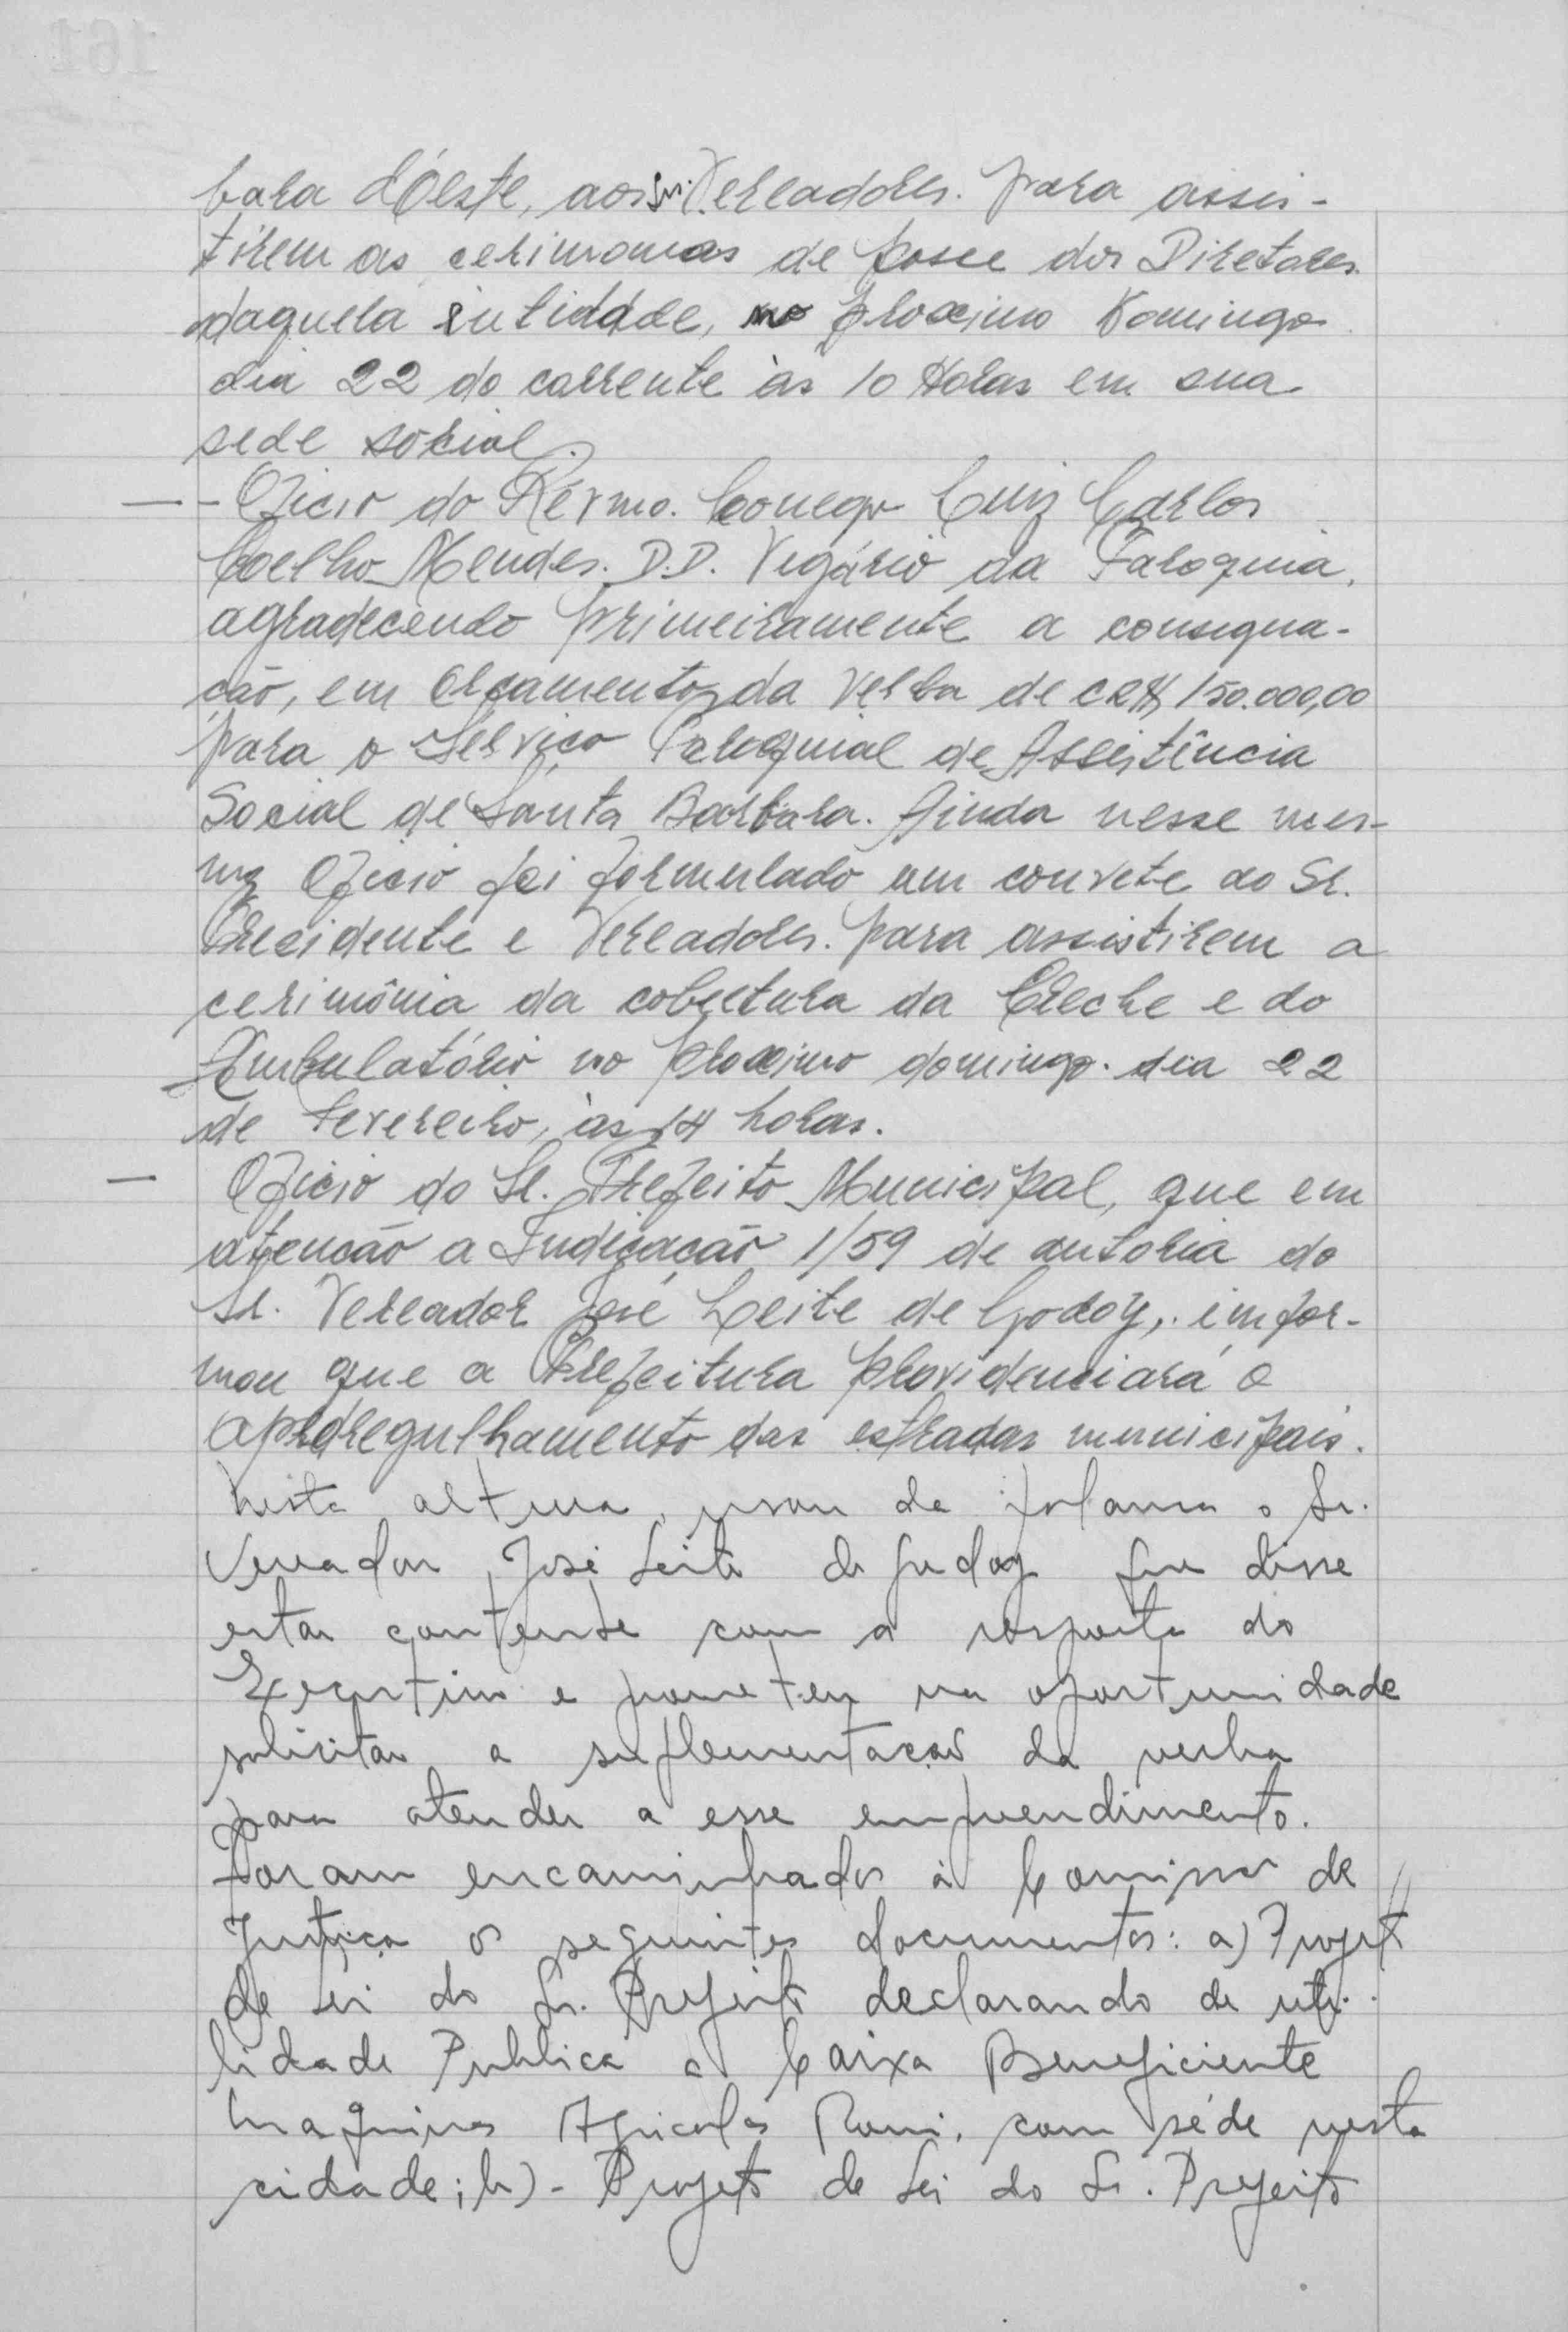 bara d'Oeste, aos Srs. Vereadores. para assis-
tirem as cerimonias de posse dos Diretores
daquela entidade, no proximo Domingo
dia 22 do corrente às 10 Horas em sua
sede social.
— - Oficio do Révmo. Conego Luiz Carlos
Coelho Mendes. D.D. Vigário da Paroquia,
agradecendo primeiramente a consigna-
ção, em Orçamento, da Verba de CR$ 150.000,00
para o Serviço Paroquial de Assistência
Social de Santa Barbara. Ainda nesse mes-
mo Oficio foi formulado um convete ao Sr.
Presidente e Vereadores. para assistirem a
cerimônia da cobertura da Creche e do
Ambulatório no proximo domingo. dia 22
de Fevereiro, às 14 horas.
— Oficio do Sr. Prefeito Municipal, que em
atenção a Indicação 1/59 de autoria do
Sr. Vereador José Leite de Godoy, infor-
mou que a Prefeitura providenciará o
apedregulhamento das estradas municipais.
Nesta altura, usou da palavra o Sr.
Vereador José Leite de Godoy que disse
estar contente com a resposta do
Executivo e prometeu na oportunidade
solicitar a suplementação da verba
para atender a esse empreendimento.
Foram encaminhados à Comissão de
Justiça os seguintes documentos: a) Projeto
de Lei do Sr. Prefeito declarando de uti-
lidade Publica a Caixa Beneficiente
Maquinas Agricolas Romi, com séde nesta
cidade; b) - Projeto de Lei do Sr. Prefeito